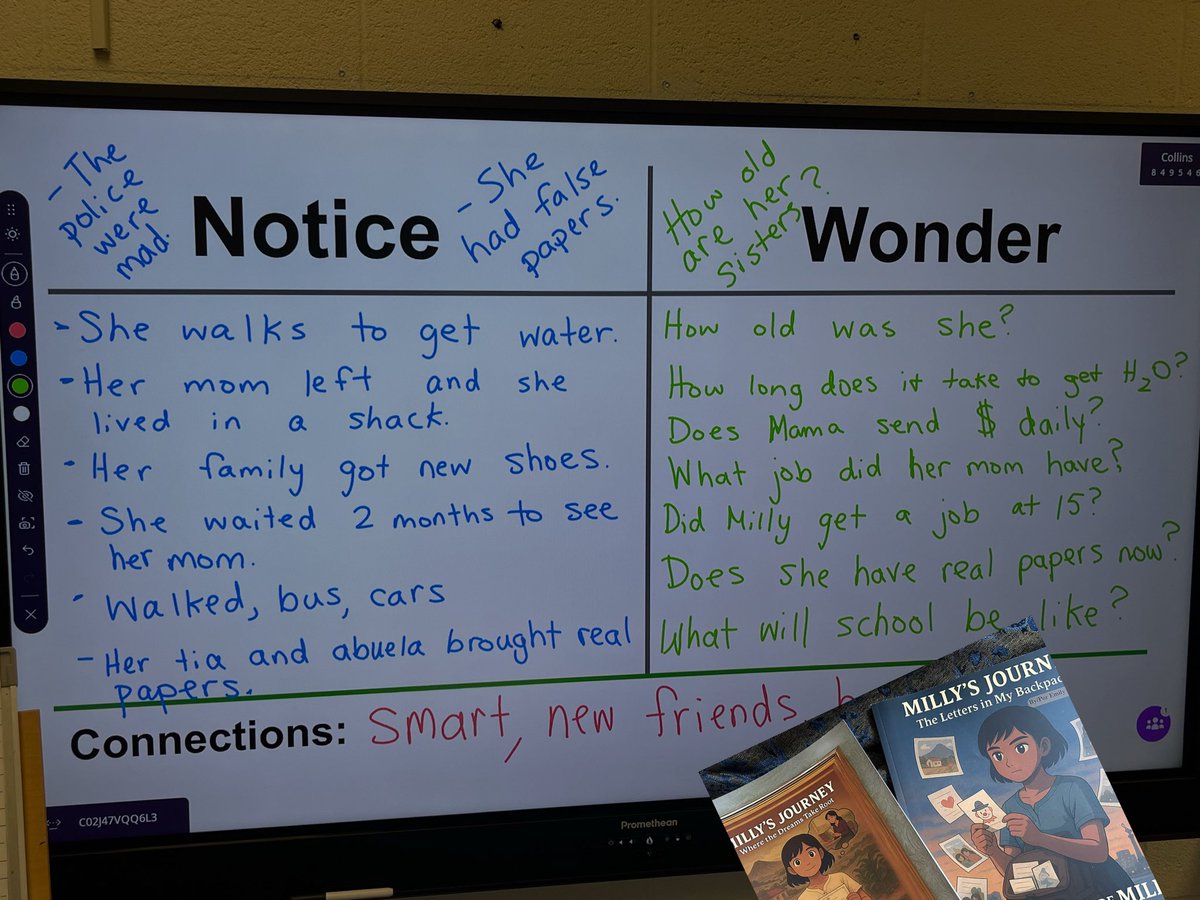 - The
police
were
mad.
Notice
- She
had false
papers.
How old
are her?
Sisters
Wonder
Collins
849546
- She walks to get water.
- Her mom left and she
lived in a shack.
- Her family got new shoes.
- She waited 2 months to see
her mom.
- Walked, bus, cars
- Her tia and abuela brought real
papers.
How old was she?
How long does it take to get H₂O?
Does Mama send $ daily?
What job did her mom have?
Did Milly get a job at 15?
Does she have real papers now?
What will school be like?
Connections: smart, new friends
C02J47VQQ6L3
Promethean
MILLY'S JOURNEY
Where the Dreams Take Root
MILLY'S JOURN
The Letters in My Backpac
By/Por Emily